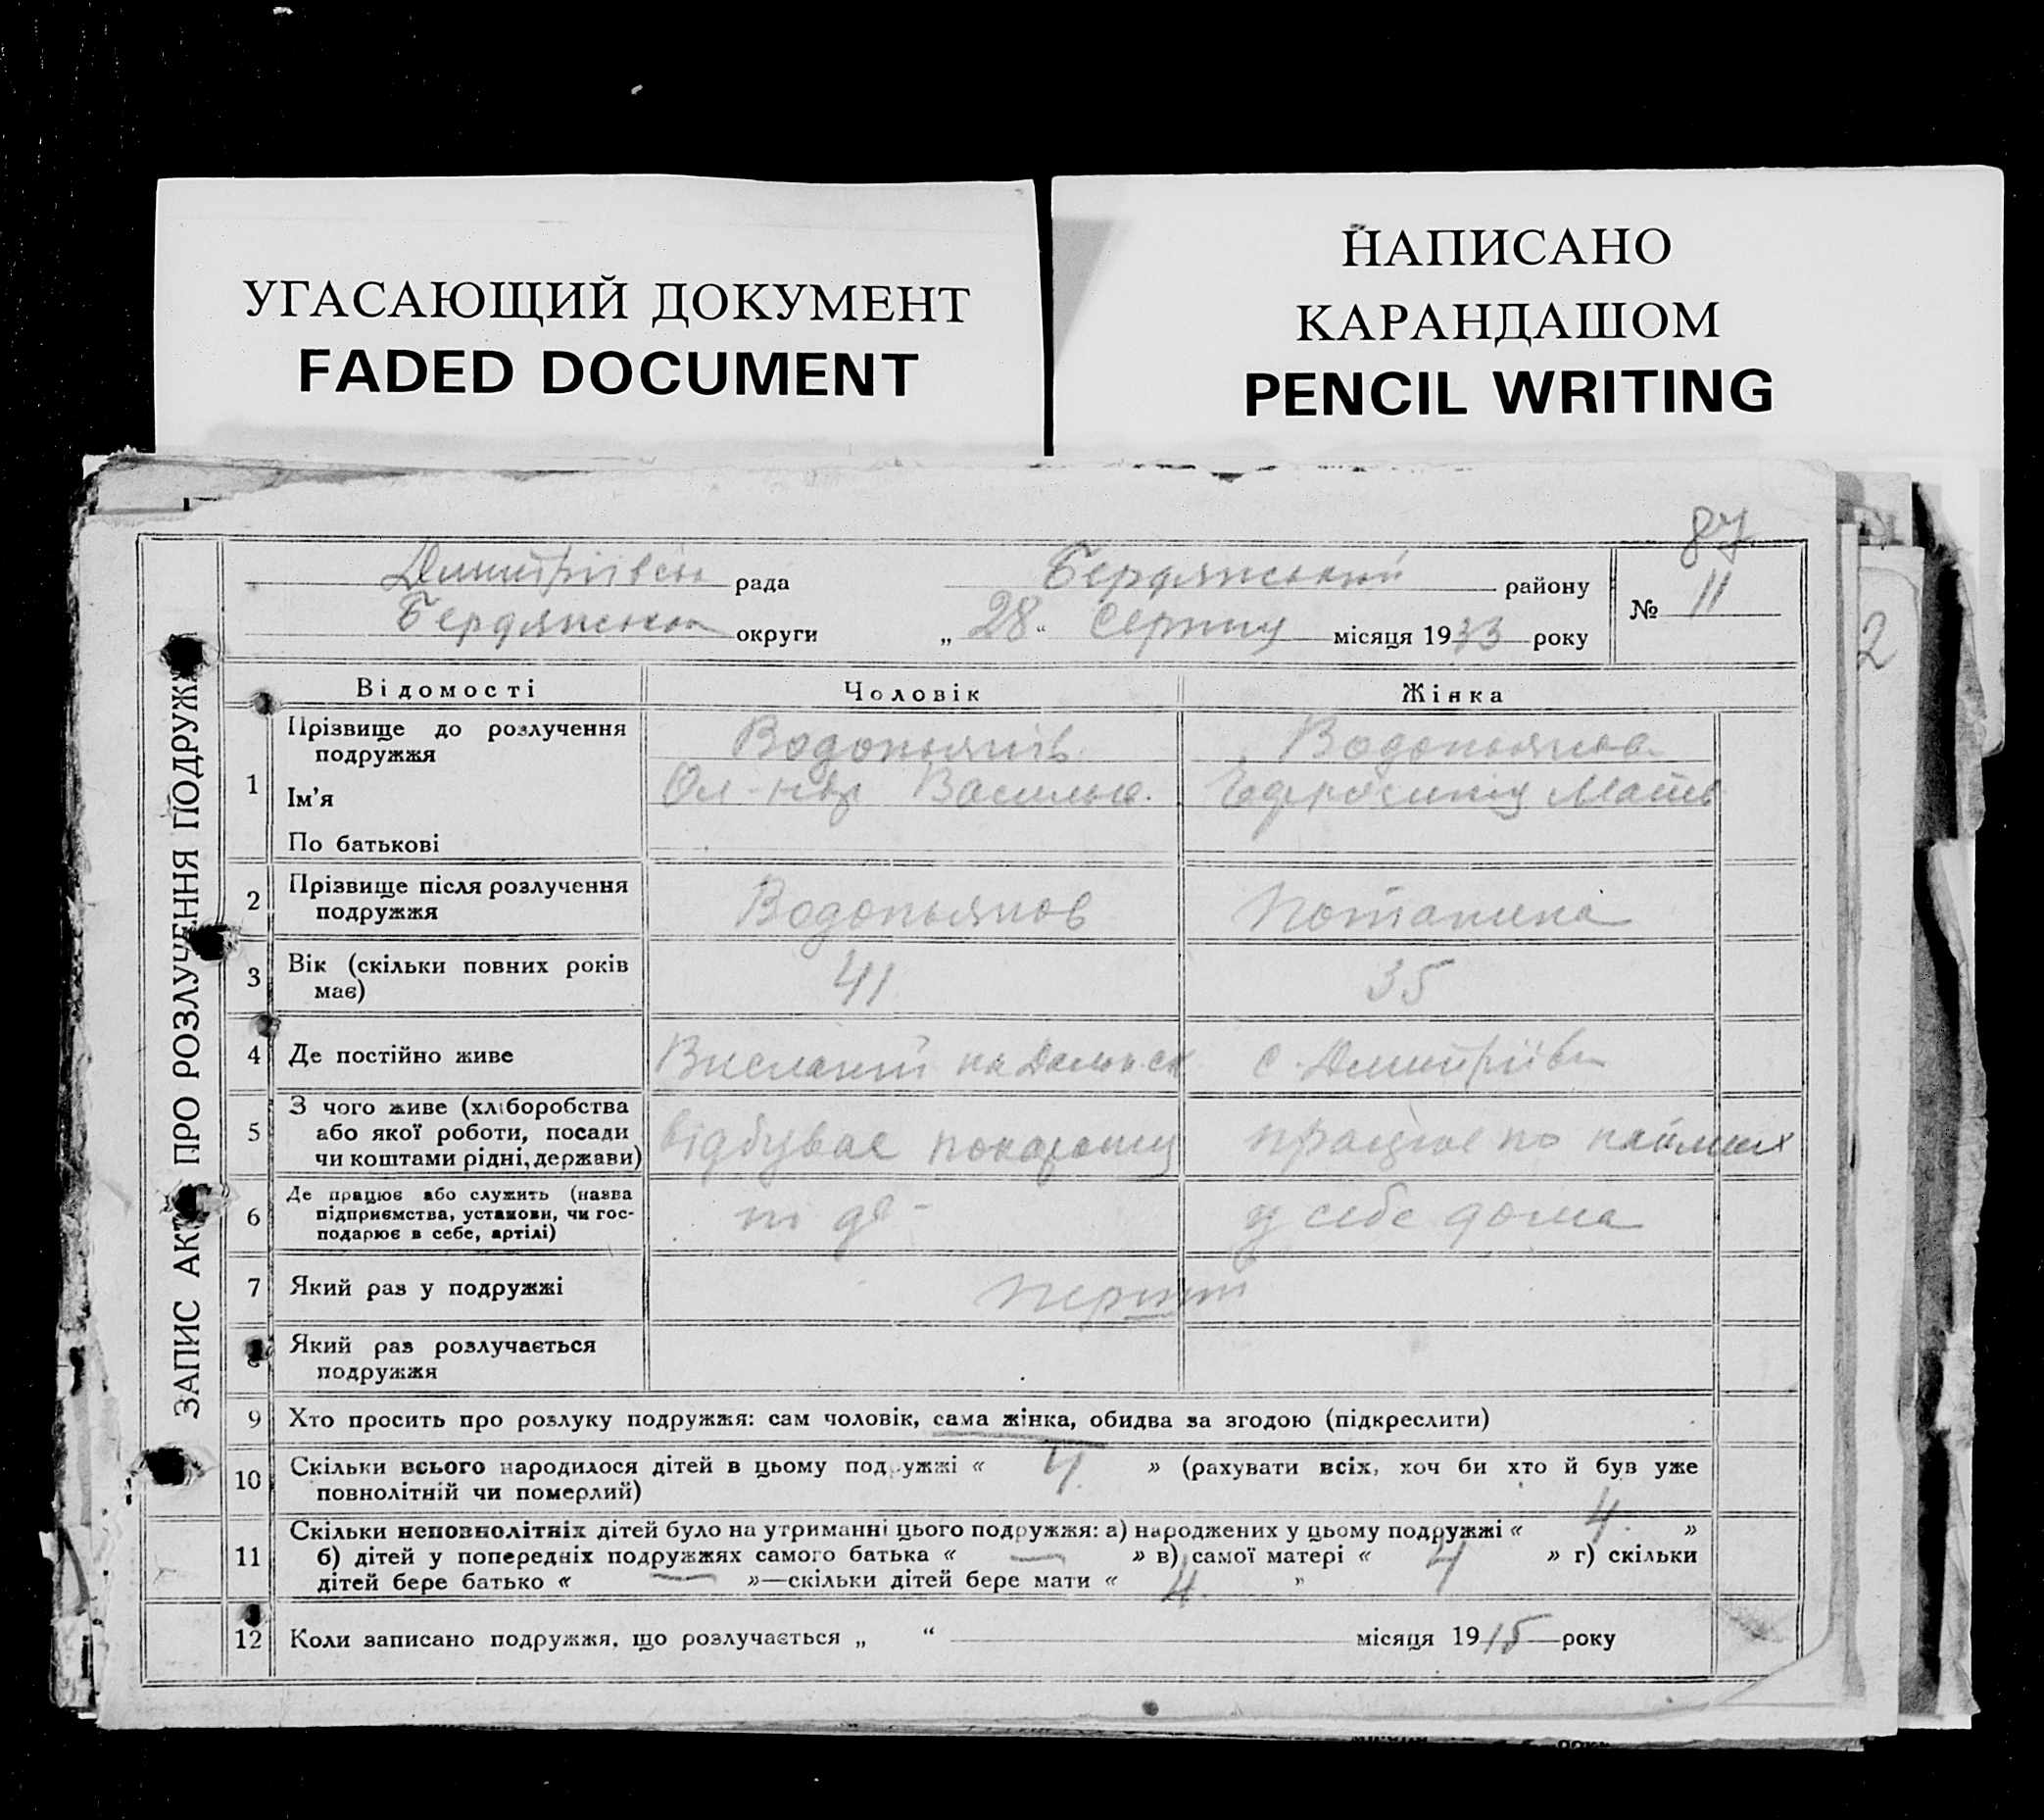 УГАСАЮЩИЙ ДОКУМЕНТ
FADED DOCUMENT
НАПИСАНО
КАРАНДАШОМ
PENCIL WRITING
87
2
ЗАПИС АКТ ПРО РОЗЛУЧЕННЯ ПОДРУЖ
Димитрівська рада Бердянський району № 11
Бердянська округи „ 28 “ Серпня місяця 1933 року
Відомості Чоловік Жінка
1 Прізвище до розлучення подружжя Водопьянів Водопьянова
Ім’я Ол-ндр Василь. Ефросинія Матв
По батькові
2 Прізвище після розлучення подружжя Водопьянов Потапина
3 Вік (скільки повних років має) 41 35
4 Де постійно живе Висланий на с. Димитрівка
5 З чого живе (хліборобства або якої роботи, посади чи коштами рідні, держави) відбуває покарання працює по наймах
6 Де працює або служить (назва підприємства, установи, чи господарює в себе, артілі) у себе дома
7 Який раз у подружжі перший
8 Який раз розлучається подружжя
9 Хто просить про розлуку подружжя: сам чоловік, сама жінка, обидва за згодою (підкреслити)
10 Скільки всього народилося дітей в цьому подружжі « 4 » (рахувати всіх, хоч би хто й був уже
повнолітній чи померлий)
11 Скільки неповнолітніх дітей було на утриманні цього подружжя: а) народжених у цьому подружжі « 4 »
б) дітей у попередніх подружжях самого батька « — » в) самої матері « 4 » г) скільки
дітей бере батько « — »—скільки дітей бере мати « 4 »
12 Коли записано подружжя, що розлучається „ “ місяця 1915 року